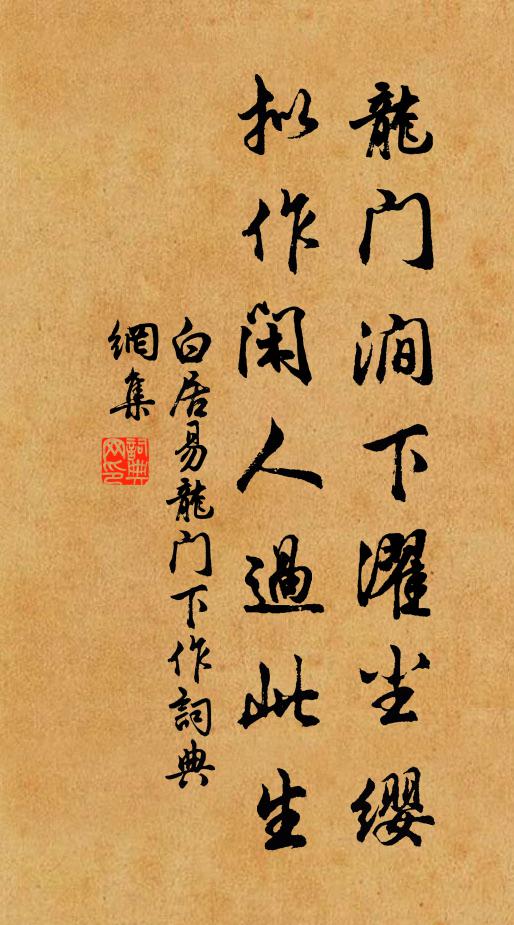 龍门澗下濯尘缨
拟作閑人過此生
白居易龍门下作詞典
網集
詞典网印